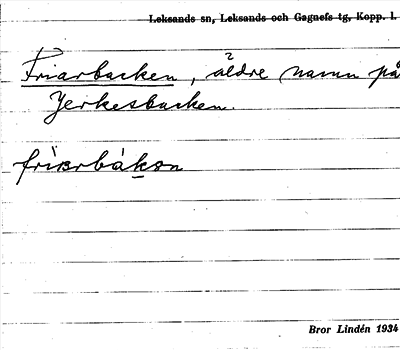 Leksands sn, Leksands och Gagnefs tg, Kopp. l.
Friarbacken, äldre namn på
Jerkesbacken.
Bror Lindén 1934